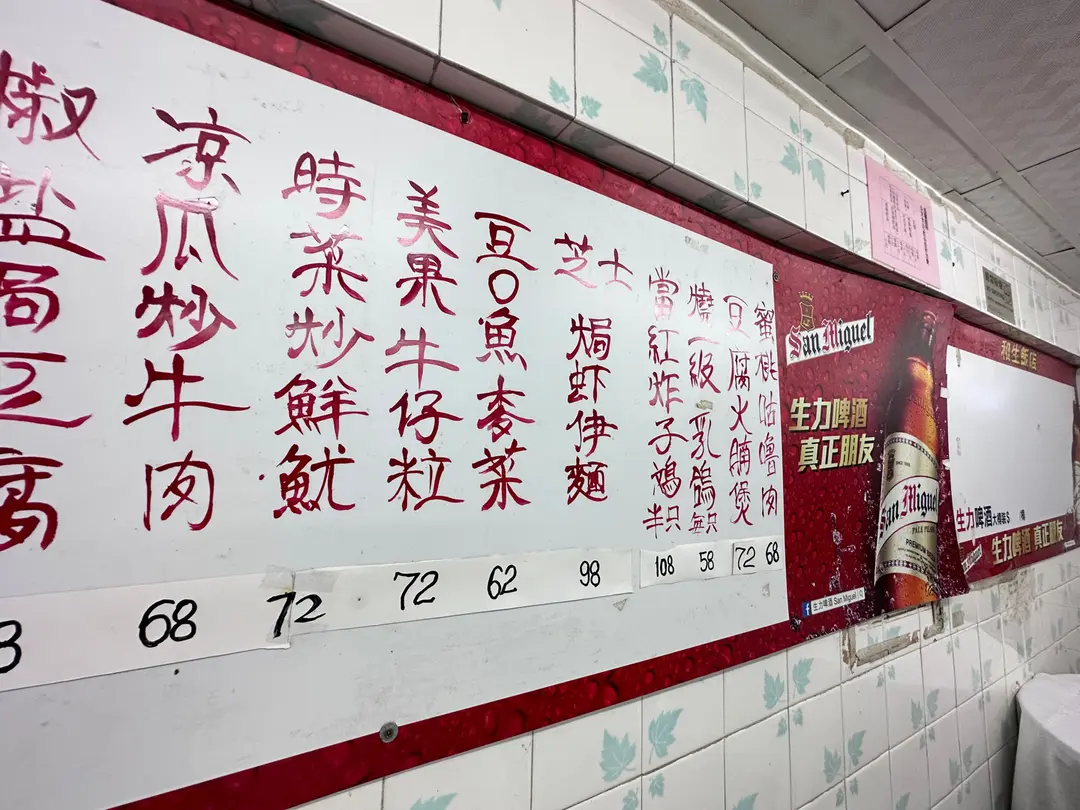 蜜桃咕嚕肉
68
豆腐火腩煲
72
燒一級乳鴿
每只
58
當紅炸子鷄
半只
108
芝士
焗虾伊麵
98
豆〇魚麥菜
62
美果牛仔粒
72
時菜炒鮮魷
72
凉瓜炒牛肉
68
椒盐焗豆腐
San Miguel
生力啤酒
真正朋友
San Miguel
PALE PILSEN
PREMIUM
生力啤酒 San Miguel
和生飯店
生力啤酒大樽裝$ /樽
San Miguel
生力啤酒 真正朋友